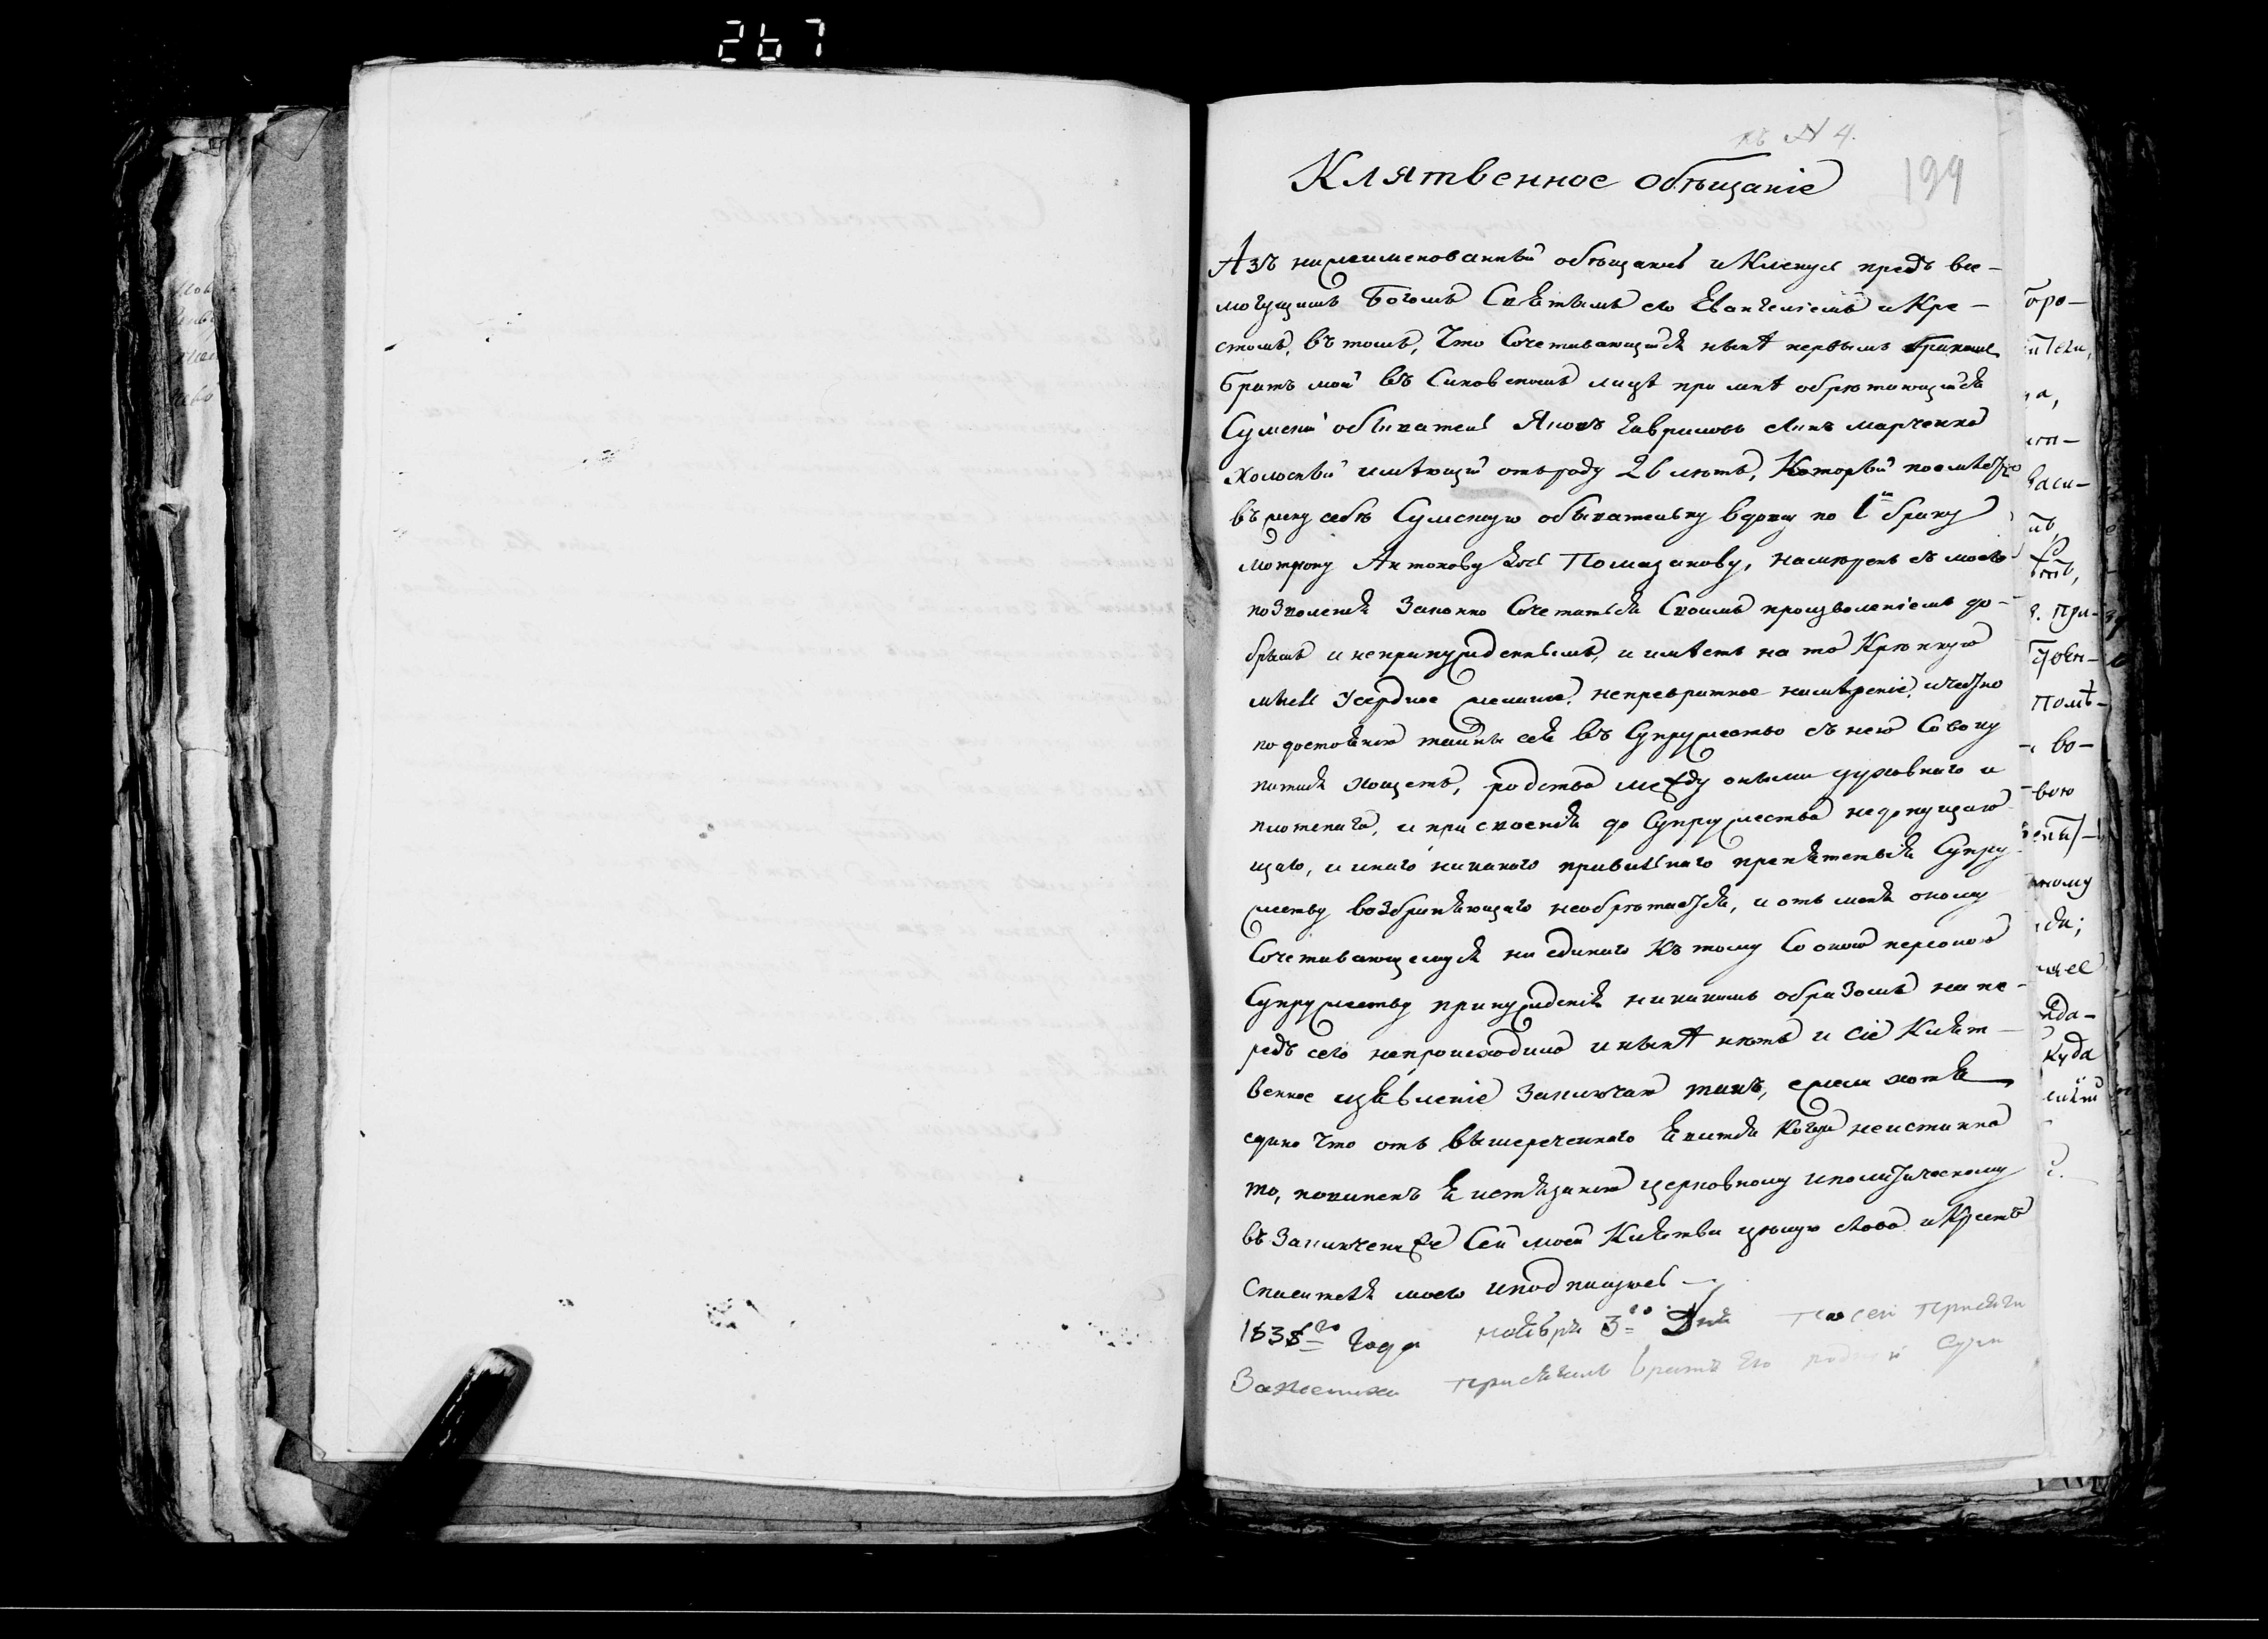 267
къ N 4.
Клятвенное обѣщаніе
199
Азъ нижеименованный обѣщаюсь и Кленусь предъ все-
могущимъ Богомъ Святымъ его Евангеліемъ и Кре-
стомъ, въ томъ, что Сочетавающійся нынѣ первымъ бракомъ
братъ мой въ Синовскомъ лицѣ при мнѣ обрѣтающійся
Сумскій обыватель Яковъ Гавриловъ Сынъ Марченко
холостый имѣющій отъ роду 26 лѣтъ, Который поемлетъ
въ жену себѣ Сумскую обывательку вдову по 1м браку
Мотрону Антонову дочь Помазанову, намѣренъ съ моего
позволенія Законно Сочетаться Своимъ произволеніемъ до-
брымъ и непринужденнымъ, и имѣетъ на то Крѣпкую
мысль Усердное желаніе, непревратное намѣреніе, и честно
по достоянію тайны сея въ Супружество съ нею Совоку
питися хощетъ, родства между оными духовнаго и
плотскаго, и присвоенія до Супружества недопущаю
щаго, и инаго никакого правильнаго препятствія Супру
жеству возбраняющаго необрѣтается, и отъ меня оному
Сочетавающемуся ни единаго Къ тому Со оною персоною
Супружеству принужденія никакимъ образомъ на пе-
редъ сего непроисходило и нынѣ нѣтъ и сіе Клят-
венное изъявленіе Заключаю такъ, ежели хотя
едино что отъ вышереченнаго явится Когда неистинно
то, повиненъ я истязанію церковному и политическому
въ Заключеніе Сей моей Клятвы цѣлую слова и Крестъ
Спасителя моего и подписуюсь
1838го Года ноября 3го Дня по сей присяги
присягалъ братъ его родной